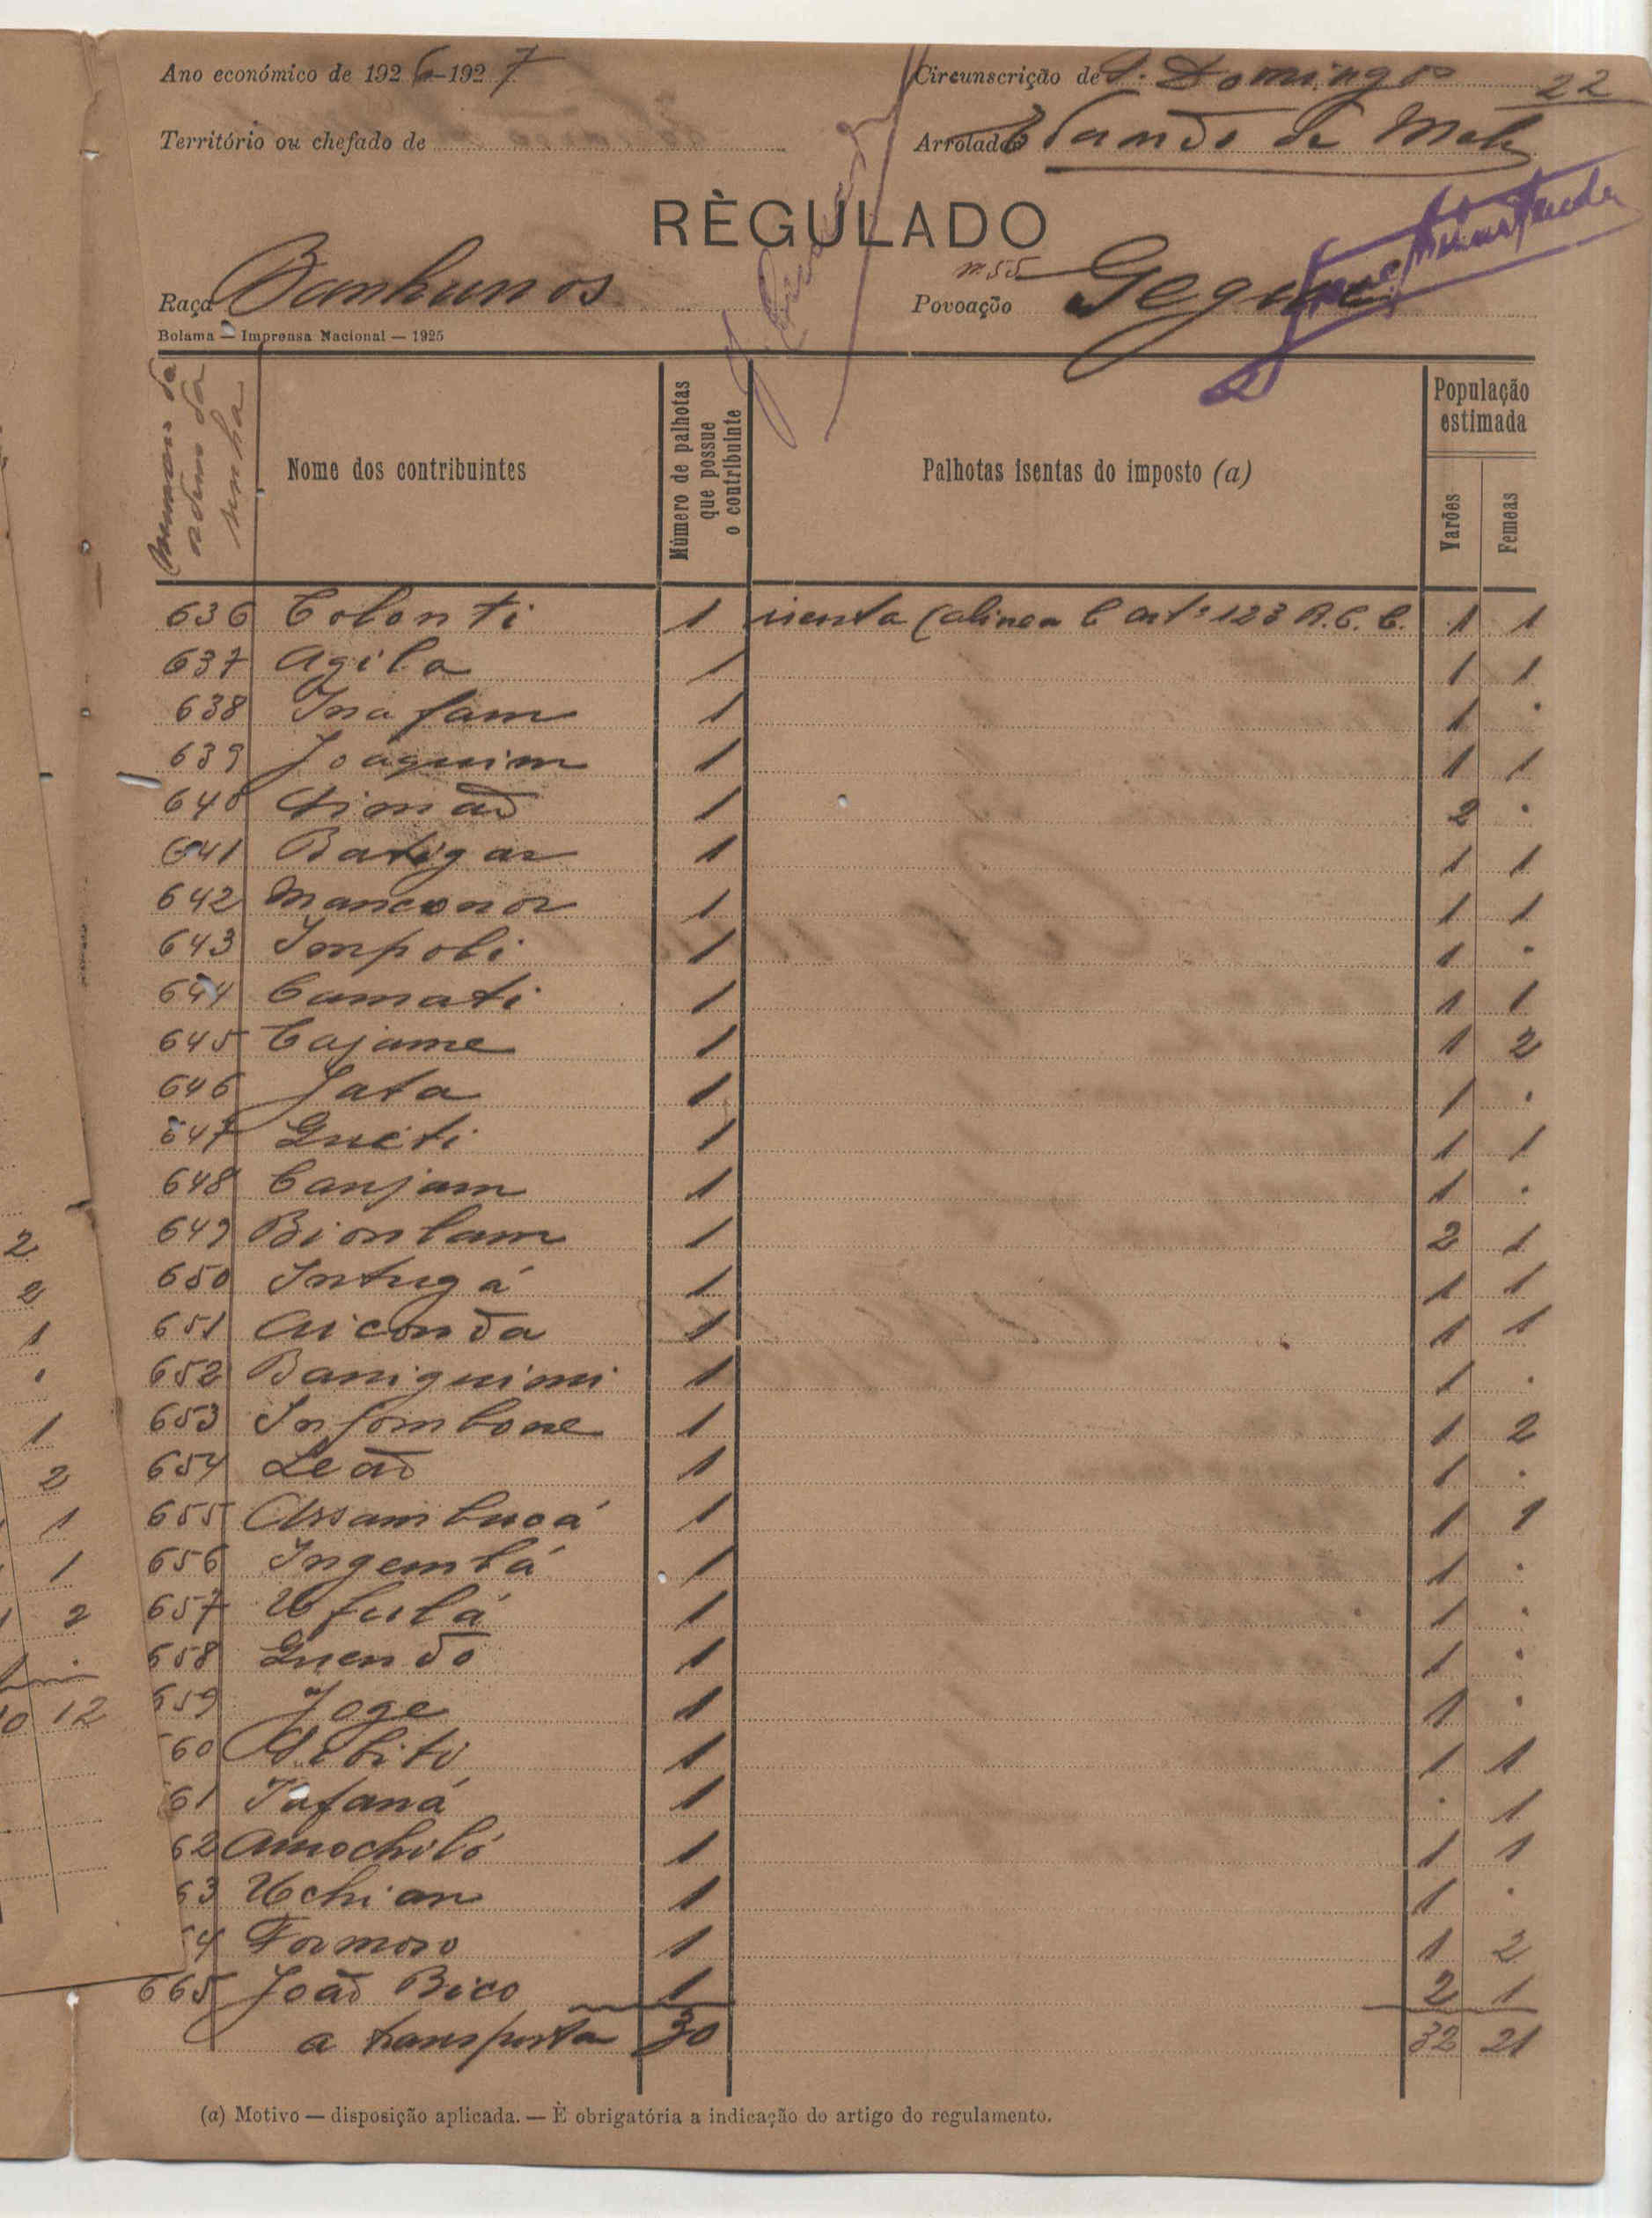 Ano económico de 1926-1927
Circunscrição de S. Domingos 22
Território ou chefado de
Arrolado
RÈGULADO
Raça Banhunos
n.º 55
Povoação
Bolama — Imprensa Nacional — 1925
Numero de ordem da senha
Nome dos contribuintes
Número de palhotas que possue o contribuinte
Palhotas isentas do imposto (a)
População estimada
Varões
Femeas
636 Colonti 1 isenta (alinea C artº 123 R.C.C. 1 1
637 Agila 1 1 1
638 Inafam 1 1 .
639 Joaquim 1 1 1
640 Simão 1 2 .
641 Batigar 1 1 1
642 Manconor 1 1 1
643 Impoli 1 1 .
644 Camati 1 1 1
645 Cajame 1 1 2
646 Jata 1 1 .
647 Gueti 1 1 1
648 Canjam 1 1 .
649 Bionlam 1 2 1
650 Intugá 1 1 1
651 Aiconda 1 1 1
652 Baniguimi 1 1 .
653 Infombone 1 1 2
654 Leão 1 1 .
655 Assambucá 1 1 1
656 Ingembá 1 1 .
657 Ufulá 1 1 .
658 Guendo 1 1 .
659 Joge 1 1 .
60 1 1 1
61 Tafaná 1 . 1
62 Amochiló 1 1 1
63 Uchian 1 1 .
4 Formoso 1 1 2
665 João Bico 1 2 1
a transportar 30 32 21
(a) Motivo — disposição aplicada. — È obrigatória a indicação do artigo do regulamento.
2
2
1
.
1
2
1
1
2
.
12